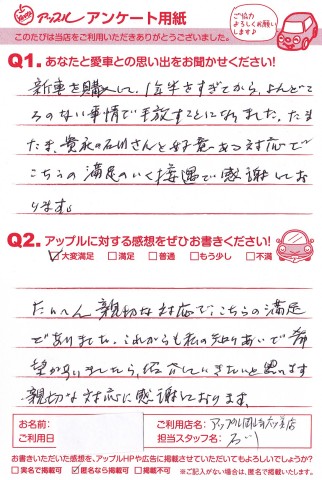 アップル アンケート用紙
ご協力
よろしくお願い
します♪
このたびは当店をご利用いただきありがとうございました。
Q1. あなたと愛車との思い出をお聞かせください!
新車を購入して、1年半をすぎてから、よんどこ
ろのない事情で手放すことになりました。たま
たま、貴社の石川さんと好意ある対応で
こちらの満足のいく接遇で感謝してお
ります。
Q2. アップルに対する感想をぜひお書きください!
☑大変満足 □満足 □普通 □もう少し □不満
たいへん親切な対応で、こちらの満足
でありました。これからも私の知りあいで希
望がありましたら、紹介していきたいと思います
親切な対応に感謝しております。
お名前:
ご利用日
ご利用店名: アップル岡崎六ツ美店
担当スタッフ名: 石川
お書きいただいた感想を、アップルHPや広告に掲載させていただいてもよろしいでしょうか?
□実名で掲載可 ☑匿名なら掲載可 □掲載不可 ※ご記入がない場合は、匿名で掲載いたします。